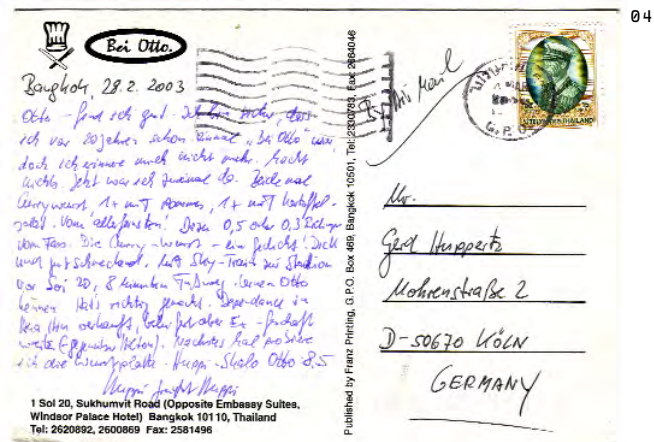 04
Bei Otto.
Bangkok, 28.2.2003
Otto - fand ich gut.
ich vor 20 Jahren schon einmal "Bei Otto" war,
doch ich erinnere mich nicht mehr. Macht
nichts. Jetzt war ich zweimal da. Beide mal
Currywurst, 1x mit Pommes, 1x mit Kartoffel-
salat. Vom allerfeinsten! Dazu 0,5 oder 0,3
vom Fass. Die Curry-Wurst - ein Gedicht! Dick
und gut schmeckend. Mit Sky-Train zur Station
vor Soi 20, 8 Minuten Fußweg. Otto
können. Hat's richtig gemacht. Dependance in
verkauft, Ex-
Nächstes Mal probiere
ich die Wurstplatte. Huppi-Skala Otto 8,5
Huppi Huppi
1 Soi 20, Sukhumvit Road (Opposite Embassy Suites,
Windsor Palace Hotel) Bangkok 10110, Thailand
Tel: 2620892, 2600869 Fax: 2581496
Published by Franz Printing, G.P.O. Box 469, Bangkok 10501, Tel: 2330783, Fax: 2664046
By Air Mail
G.P.O
THAILAND
Mr.
Gerd Huppertz
Mohrenstraße 2
D-50670 KÖLN
GERMANY